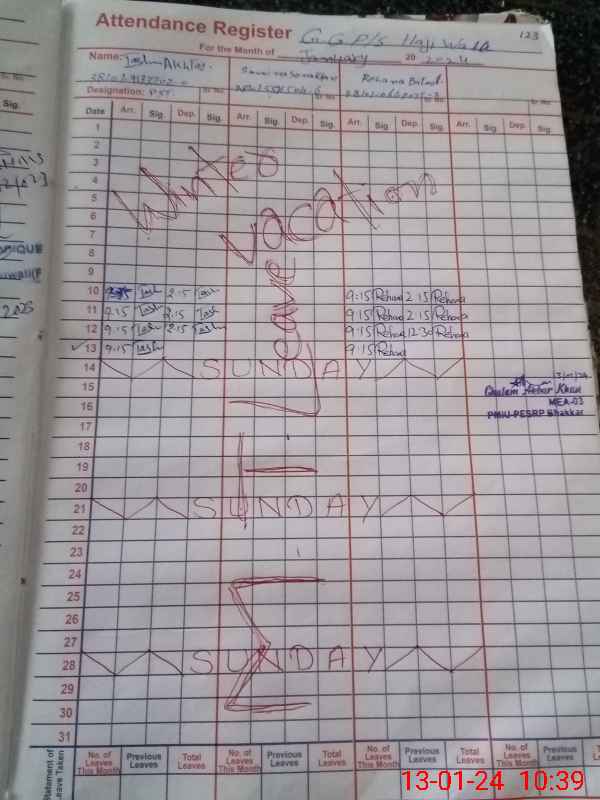 Attendance Register G G P/S Haji Wala 123
For the Month of January 20 2024
Name: Tash Akhtar Rehana Batool
Designation: PST
Date Arr. Sig. Dep. Sig. Arr. Sig. Dep. Sig. Arr. Sig. Dep. Sig. Arr. Sig. Dep. Sig.
1
2
3
4
5
6
7
8
9
Winter
vacation
10 Tash 2.15 Tash 9:15 Rehana 2:15 Rehana
11 9.15 Tash 2.15 Tash 9:15 Rehana 2:15 Rehana
12 9.15 Tash 2.15 Tash 9:15 Rehana 12:30 Rehana
13 9.15 Tash 9:15 Rehana
Leave
14 SUNDAY
15
Ghulam Akbar Khan
MEA-03
PMIU-PESRP Bhakkar
16
17
18
19
20
21 SUNDAY
22
23
24
25
26
27
28 SUNDAY
29
30
31
Statement of Leave Taken
No. of Leaves This Month Previous Leaves Total Leaves No. of Leaves This Month Previous Leaves Total Leaves No. of Leaves This Month Previous Leaves Total Leaves No. of Leaves This Month Previous Leaves Total Leaves
13-01-24 10:39